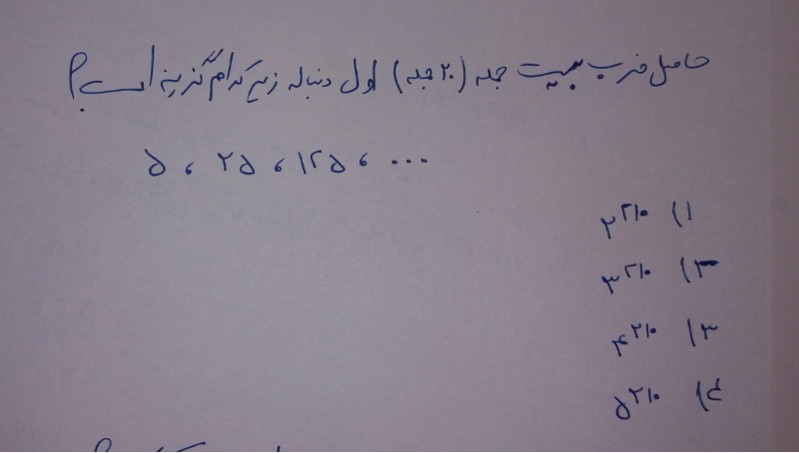 حاصل ضرب بیست جمله (۲۰ جمله) اول دنباله زیر کدام گزینه است؟
۵ ، ۲۵ ، ۱۲۵ ، ...
۱) ۲^۲۱۰
۲) ۳^۲۱۰
۳) ۴^۲۱۰
۴) ۵^۲۱۰